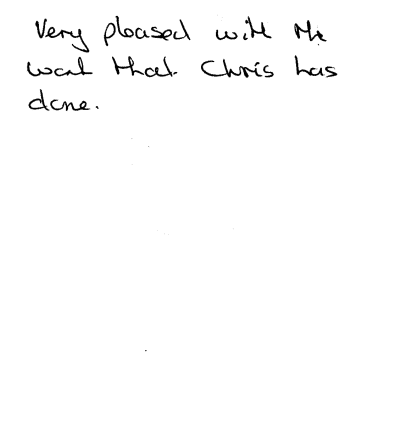 Very pleased with the
work that Chris has
done.